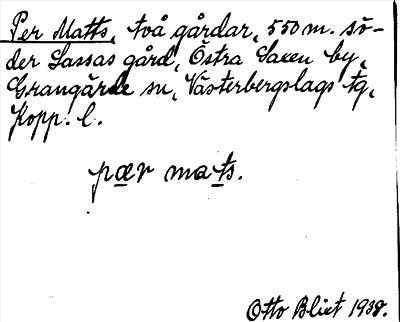 Per Matts, två gårdar, 550 m. sö-
der Lassas gård, Östra Saxen by,
Grangärde sn, Västerbergslags tg,
Kopp. l.
pær mats.
Otto Blixt 1938.